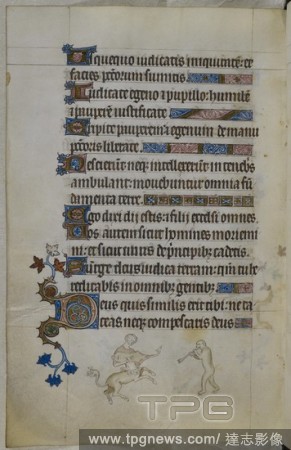 Usquequo iudicatis iniquitatē: et
facies pctōrum sumitis.
Iudicate egeno ⁊ pupillo: humilē
⁊ paupērē iustificate
Eripite pauperem: ⁊ egenum de manu
pctōris liberate.
Nescierunt neq; intellexerūt in tenebris
ambulant: mouebuntur omnia fū
damenta terre.
Ego dixi dii estis: ⁊ filii excelsi omnes
Uos autem sicut homines moriemi
ni: et sicut unus de principibȝ cadetis.
Surge deus iudica terram: qm̄ tu he
reditabis in omnibȝ gentibȝ.
Deus quis similis erit tibi: ne ta
ceas neq; compescaris deus
TPG
www.tpgnews.com / 達志影像